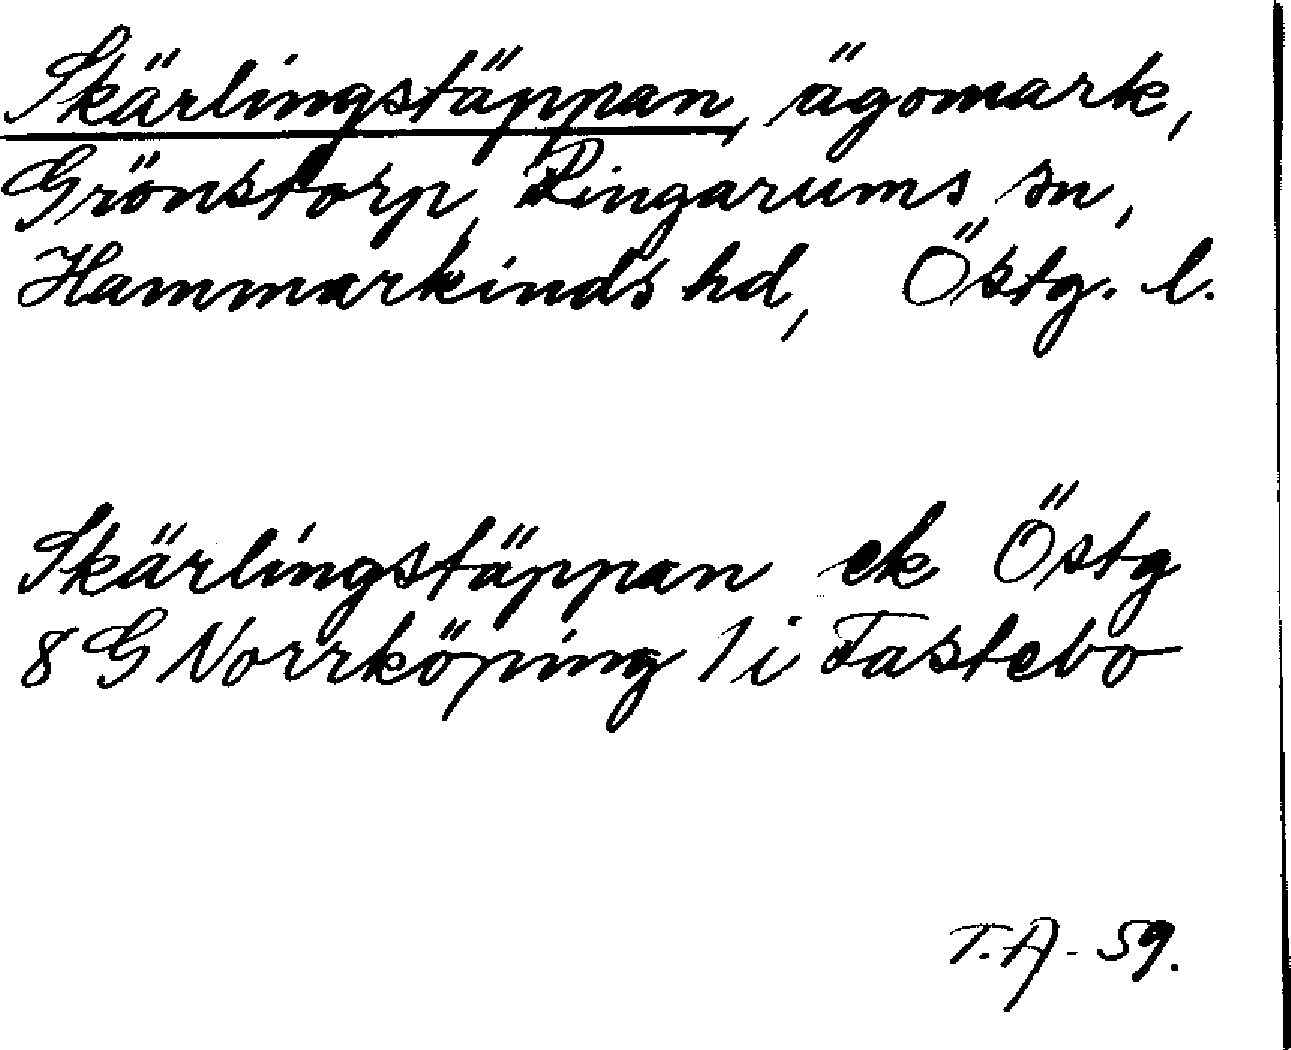 Skärlingstäppan, ägomark,
Grönstorp, Ringarums sn,
Hammarkinds hd, Östg. l.
Skärlingstäppan ek Östg
8 G Norrköping 1 i Fastebo
T.A - 59.